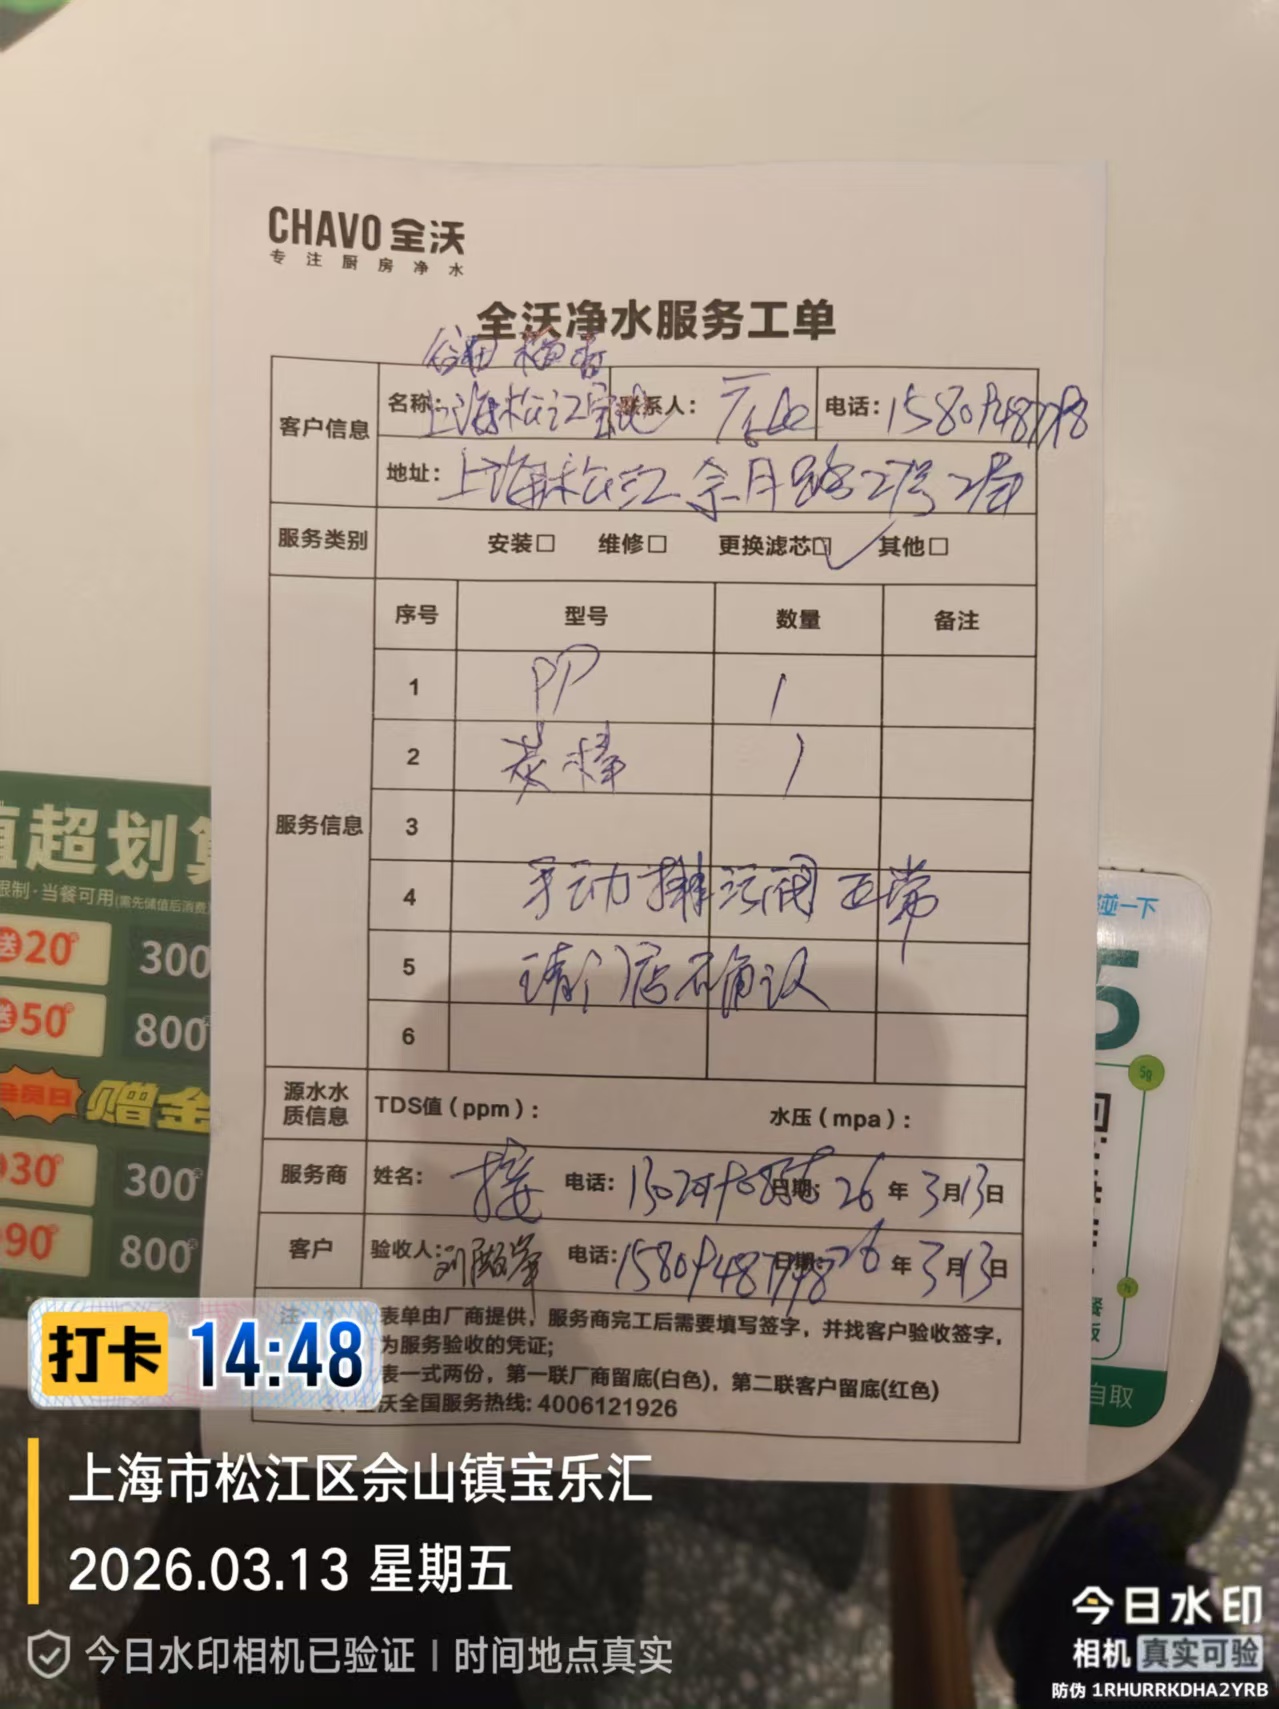 CHAVO 全沃
专注厨房净水
全沃净水服务工单
谷田稻香
客户信息 名称: 上海松江宝 联系人: 电话: 15809487798
地址: 上海松江佘月路27号2层
服务类别 安装□ 维修□ 更换滤芯□✓ 其他□
服务信息 序号 型号 数量 备注
1 PP 1
2 炭棒 1
3
4 手动排污阀正常
5 请门店确认
6
源水水质信息 TDS值(ppm): 水压(mpa):
服务商 姓名: 电话: 日期: 26年3月13日
客户 验收人: 电话: 15809487798 日期: 26年3月13日
注:
表单由厂商提供，服务商完工后需要填写签字，并找客户验收签字，
为服务验收的凭证;
表一式两份，第一联厂商留底(白色)，第二联客户留底(红色)
沃全国服务热线: 4006121926
值超划算
限制·当餐可用(需先储值后消费)
送20 300
送50 800
会员日 赠金
30 300
90 800
碰一下
5
5g
自取
打卡 14:48
上海市松江区佘山镇宝乐汇
2026.03.13 星期五
今日水印相机已验证 | 时间地点真实
今日水印
相机 真实可验
防伪 1RHURRKDHA2YRB